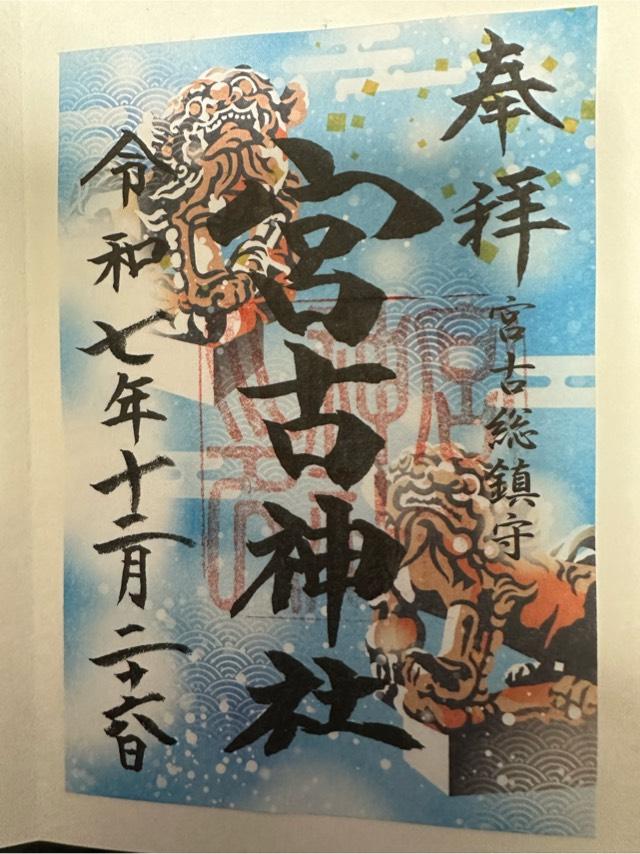 奉拝
宮古総鎮守
宮古神社
令和七年十二月二十六日